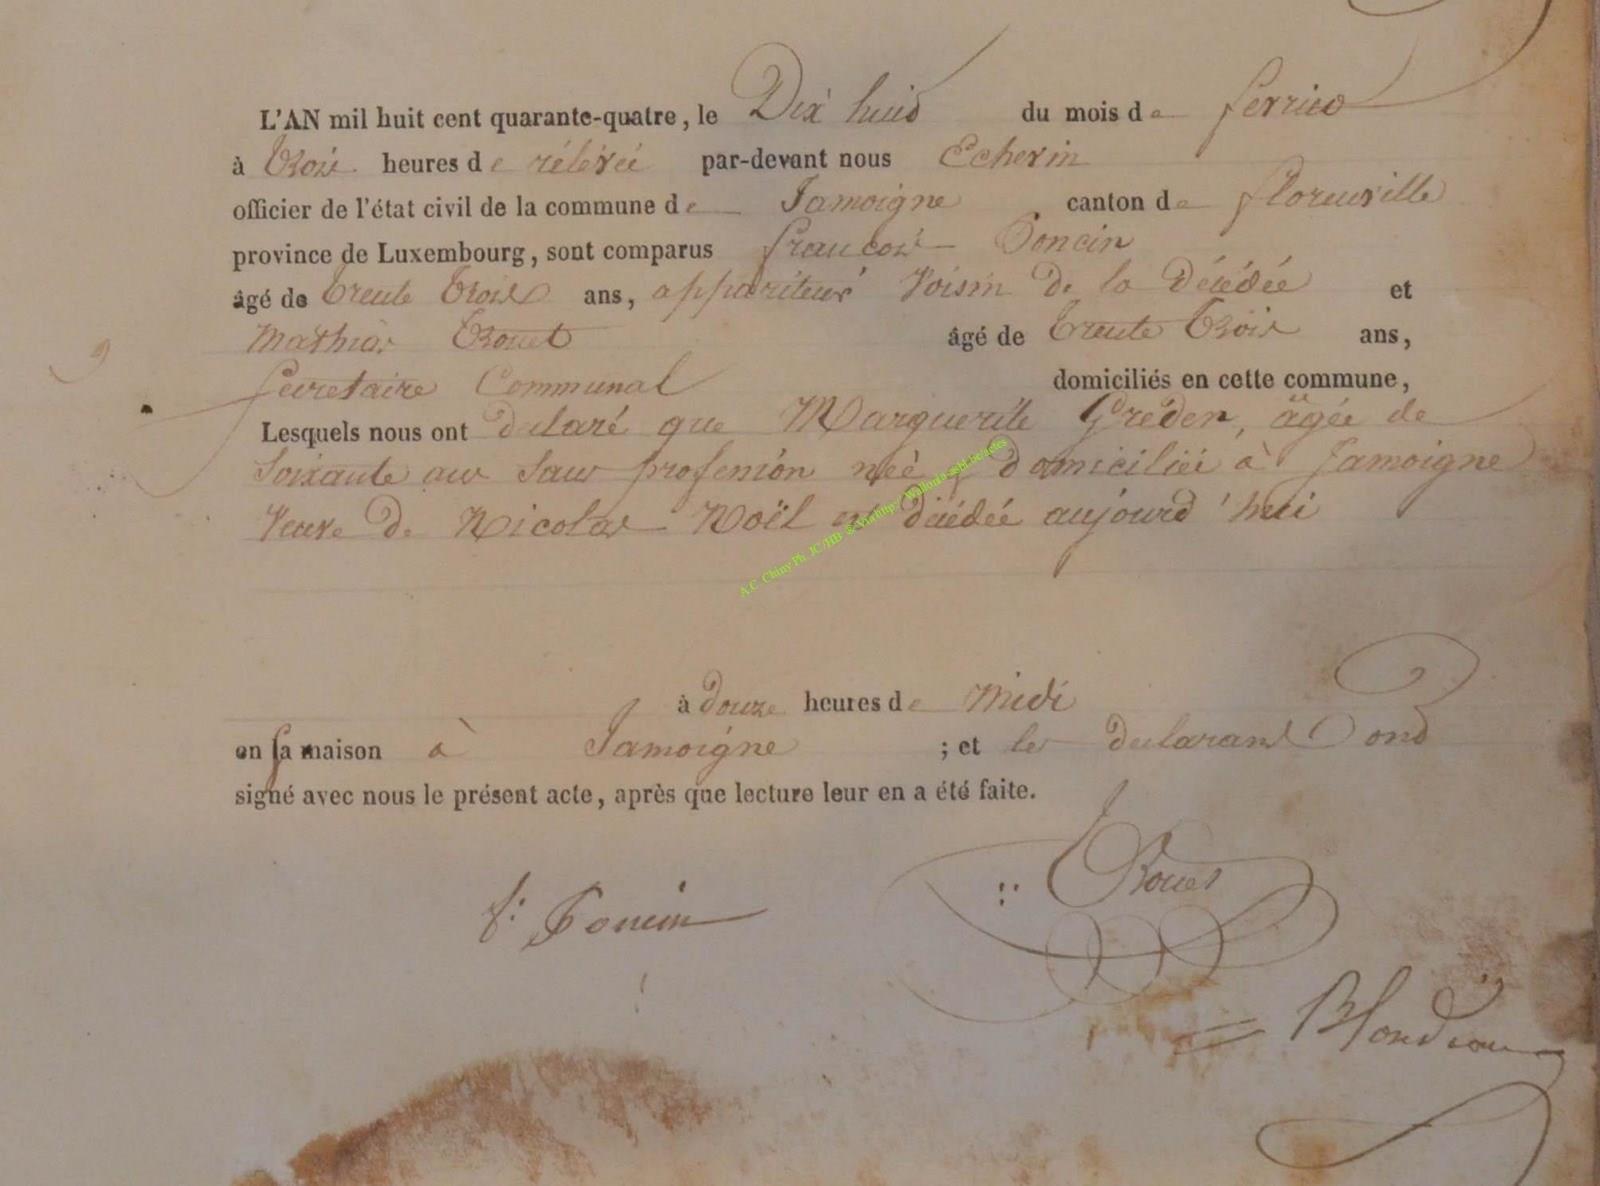 L'AN mil huit cent quarante-quatre, le Dix huit du mois de fevrier
à trois heures de rélévée par-devant nous Echevin
officier de l'état civil de la commune de Jamoigne canton de florenville
province de Luxembourg, sont comparus francois Poncin
âgé de trente trois ans, appariteur Voisin de la Décédée et
Mathias Trouet âgé de trente trois ans,
secretaire Communal domiciliés en cette commune,
Lesquels nous ont declaré que Marguerite Gréden, âgée de
soixante ans sans profession née & domiciliée à Jamoigne
Veuve de Nicolas Noël est décédée aujourd'hui
A.C. Chiny Ph. JC/HB & Via http://Wallonia-asbl.be/actes
à douze heures de Midi
en sa maison à Jamoigne ; et les declarans ont
signé avec nous le présent acte, après que lecture leur en a été faite.
f: Poncin
Trouet
Blondeau